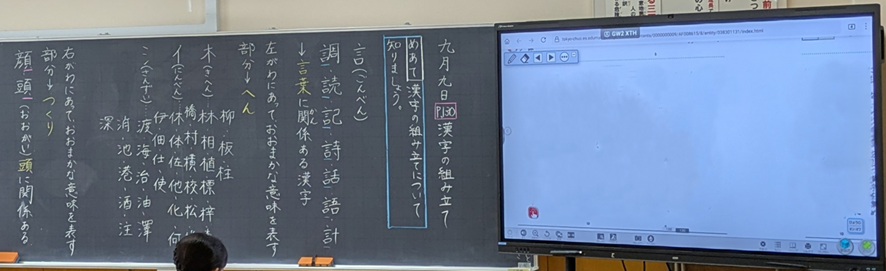 九月九日 P130 漢字の組み立て
めあて 漢字の組み立てについて
知りましょう。
言(ごんべん)
調・読・記・詩・話・語・計
↓言葉に関係ある漢字
左がわにあって、おおまかな意味を表す
部分→へん
柳・板・柱
木(きへん)林・相・植・標・梓
橋・村・横・校・松
イ(にんべん)休・体・佐・他・化・何
伊・佃・仕・使
シ(さんずい)渡・海・治・油・澤
消・池・港・酒・注
深
右がわにあって、おおまかな意味を表す
部分→つくり
顔・頭(おおがい)頭に関係ある
GW2 KTH